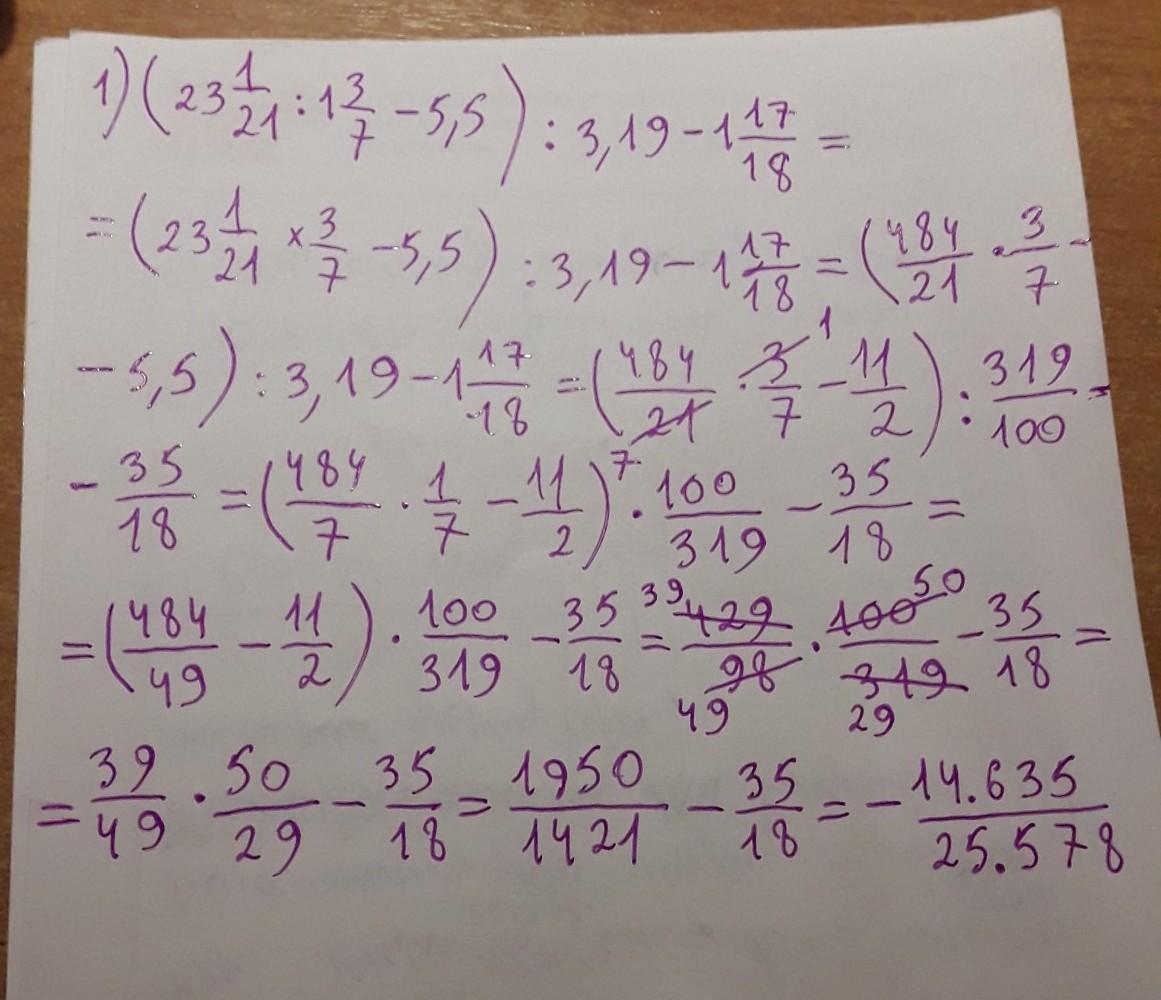 1) (23 1/21 : 1 3/7 - 5,5) : 3,19 - 1 17/18 =
= (23 1/21 × 3/7 - 5,5) : 3,19 - 1 17/18 = (484/21 · 3/7 -
- 5,5) : 3,19 - 1 17/18 = (484/21 · 3/7 - 11/2) : 319/100 - 1 7
- 35/18 = (484/7 · 1/7 - 11/2) · 100/319 - 35/18 =
= (484/49 - 11/2) · 100/319 - 35/18 = 39 429/98 49 · 100 50/319 29 - 35/18 =
= 39/49 · 50/29 - 35/18 = 1950/1421 - 35/18 = - 14.635/25.578